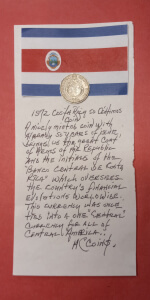 1972 COSTA RICA 50 CENTIMOS
COIN!
A NICELY MINTED COIN WITH
NEARLY 50 YEARS OF WEAR,
BRINGS US THE GREAT COAT
OF ARMS OF THE REPUBLIC
AND THE INITIALS OF THE
"BANCO CENTRAL DE COSTA
RICA" WHICH OVERSEES
THE COUNTRY'S FINANCIAL
EVOLUTIONS WORLDWIDE.
THIS CURRENCY WAS OVER
INTO A ONE "CENTRAL"
CURRENCY FOR ALL OF
CENTRAL AMERICA!